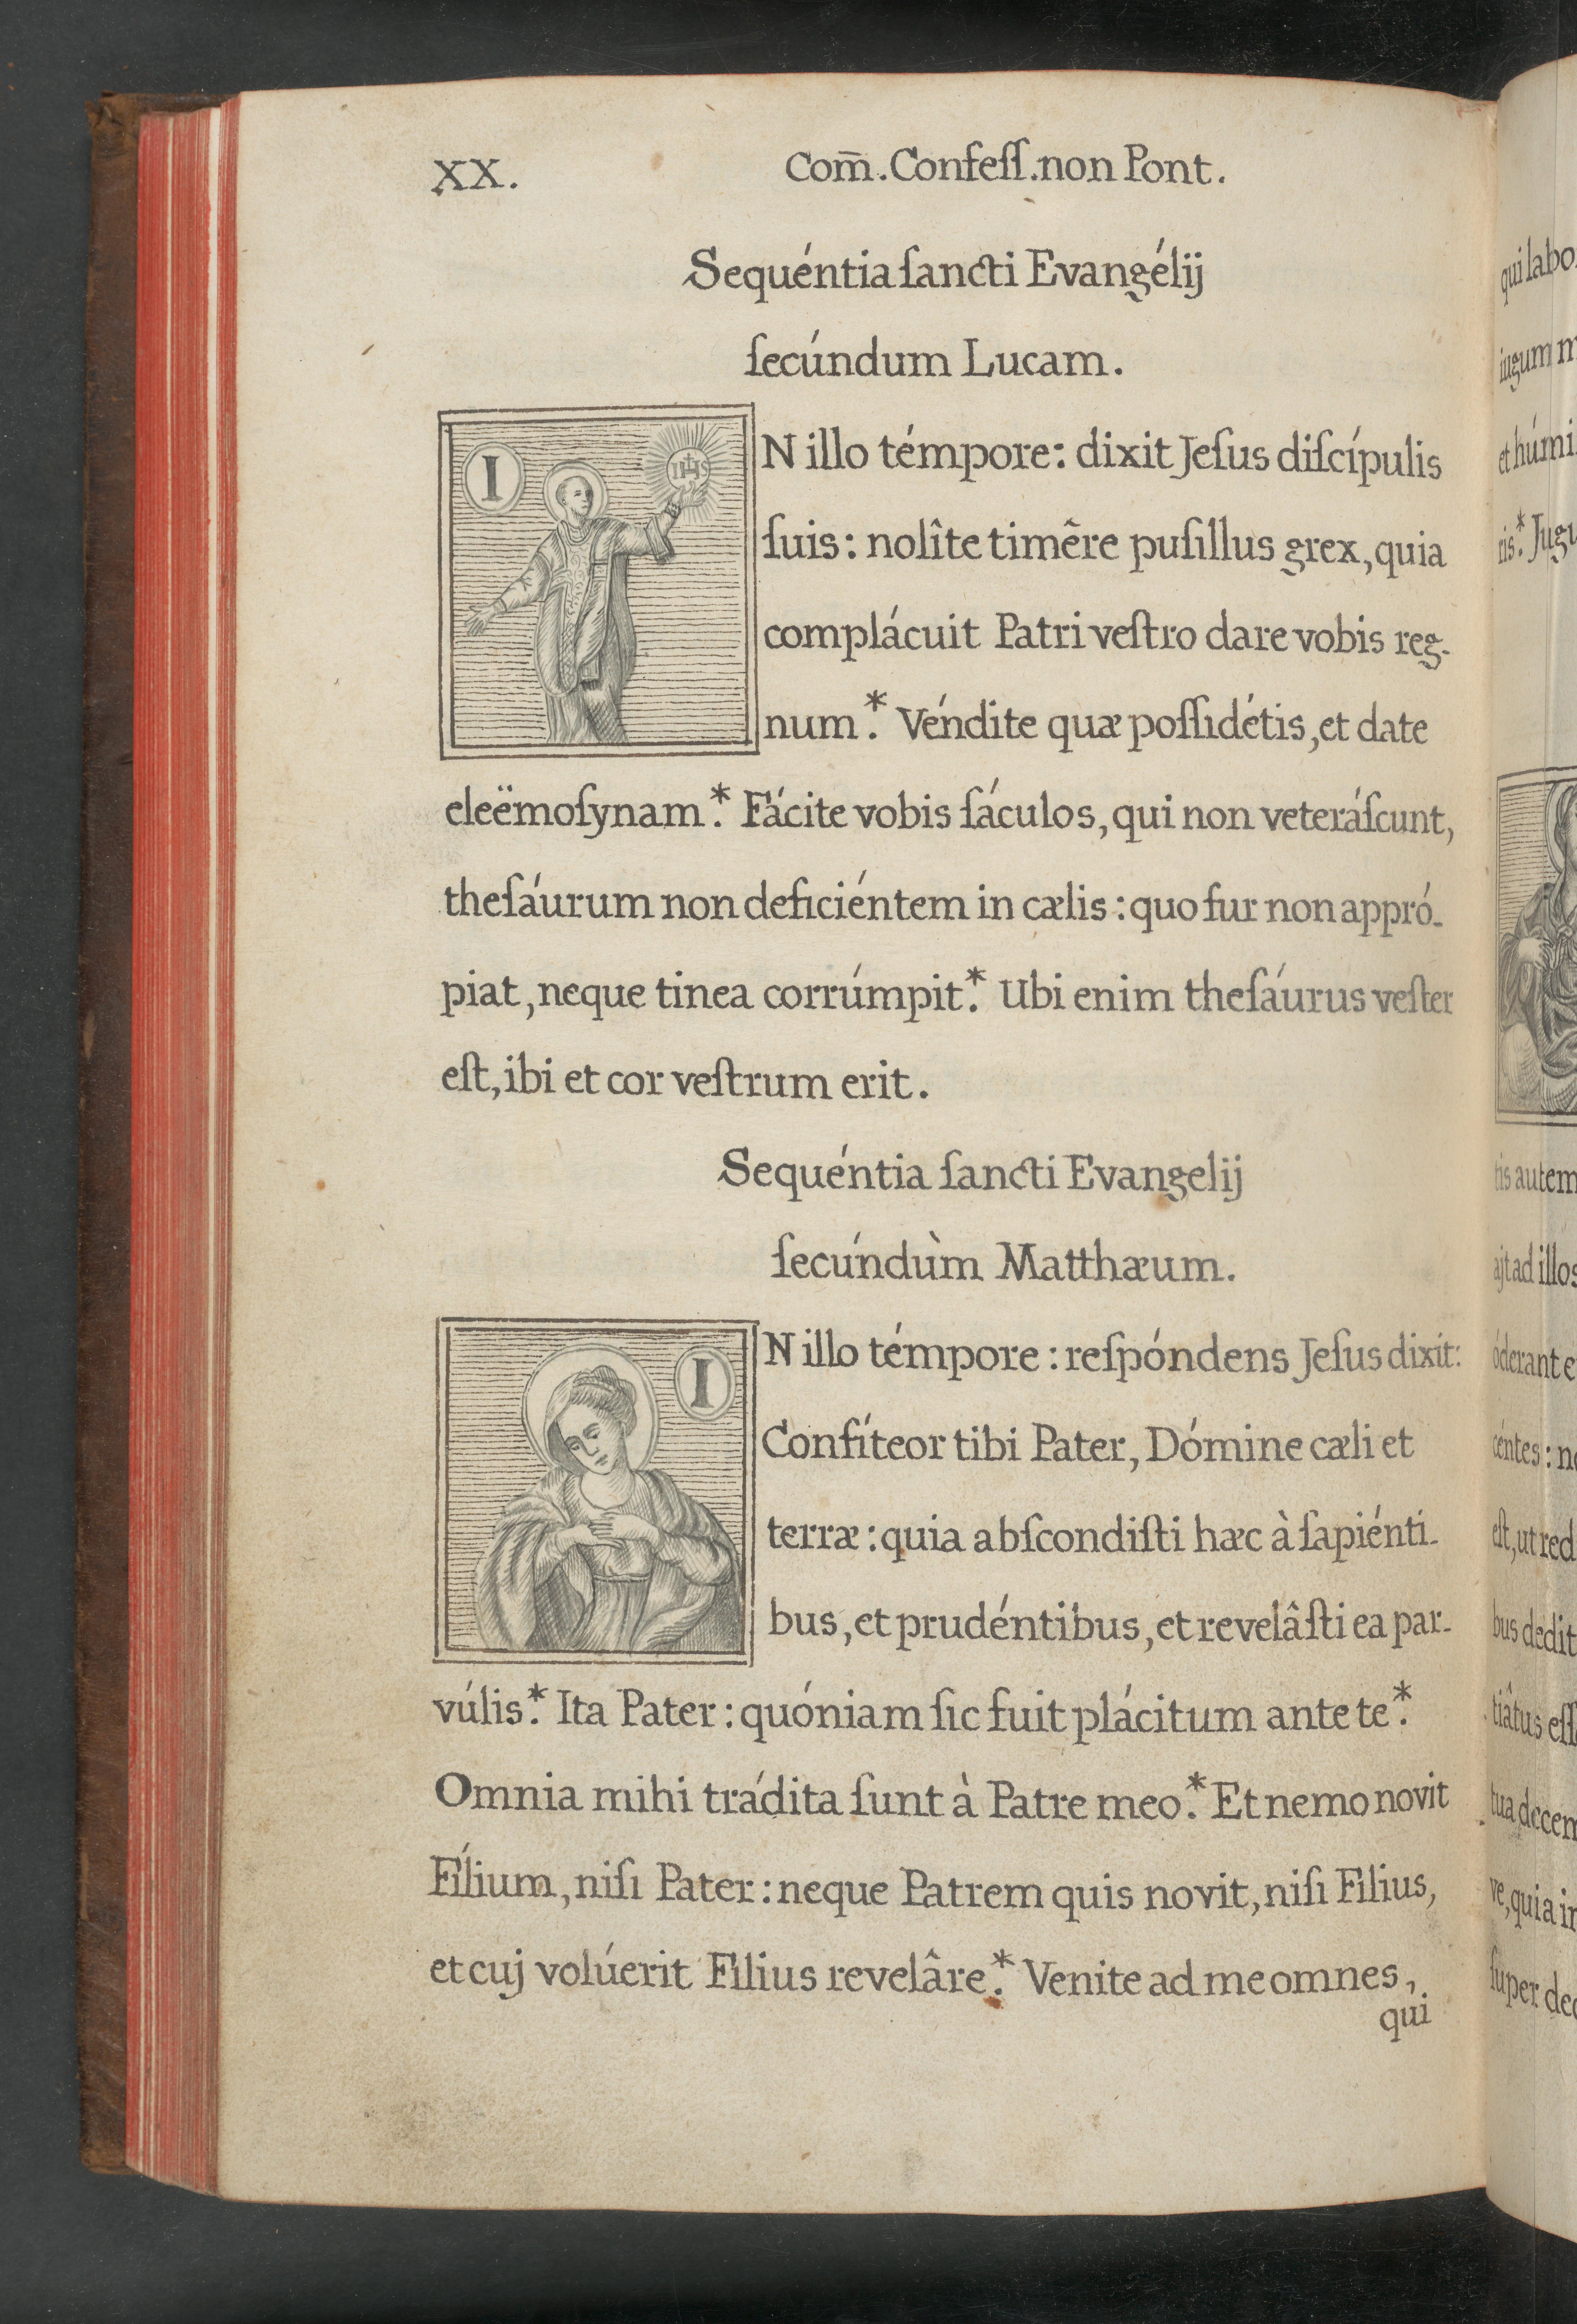 XX.
Com̄. Confeſſ. non Pont.
Sequéntia ſancti Evangélij
ſecúndum Lucam.
IN illo témpore: dixit Jeſus diſcípulis
IHS
ſuis: nolîte timêre puſillus grex, quia
complácuit Patri veſtro dare vobis reg-
num.* Véndite quæ poſſidétis, et date
eleëmoſynam.* Fácite vobis ſáculos, qui non veteráſcunt,
theſáurum non deficiéntem in cælis: quo fur non appró-
piat, neque tinea corrúmpit.* Ubi enim theſáurus veſter
eſt, ibi et cor veſtrum erit.
Sequéntia ſancti Evangelij
ſecúndùm Matthæum.
IN illo témpore: reſpóndens Jeſus dixit:
Confíteor tibi Pater, Dómine cæli et
terræ: quia abſcondiſti hæc à ſapiénti-
bus, et prudéntibus, et revelâſti ea par-
vúlis.* Ita Pater: quóniam ſic fuit plácitum ante te.*
Omnia mihi trádita ſunt à Patre meo.* Et nemo novit
Fílium, niſi Pater: neque Patrem quis novit, niſi Filius,
et cuj volúerit Filius revelâre.* Venite ad me omnes,
qui
qui labo
iugum m
et húmi
ris.* Jugu
tis autem
ajt ad illos
óderant e
céntes: no
eſt, ut red
bus dedit
tiâtus eſſ
tua decem
ve, quia in
ſuper dec